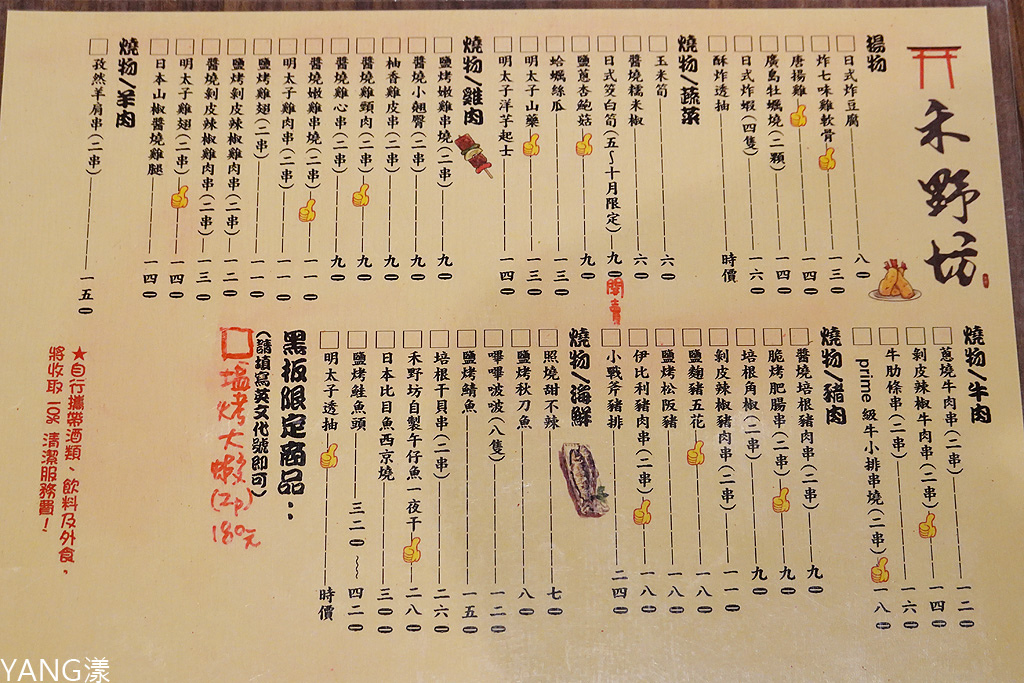 禾野坊
揚物
日式炸豆腐 八〇
炸七味雞軟骨 一三〇
唐揚雞 一四〇
廣島牡蠣燒(二顆) 一四〇
日式炸蝦(四隻) 一六〇
酥炸透抽 時價
燒物/蔬菜
玉米筍 六〇
醬燒糯米椒 六〇
日式筊白筍(五~十月限定) 九〇
開賣
鹽蔥杏鮑菇 九〇
蛤蠣絲瓜 一三〇
明太子山藥 一三〇
明太子洋芋起士 一四〇
燒物/雞肉
鹽烤嫩雞串燒(二串) 九〇
醬燒小翹臀(二串) 九〇
柚香雞皮串(二串) 九〇
醬燒雞頸肉(二串) 九〇
醬燒雞心串(二串) 九〇
醬燒嫩雞串燒(二串) 一一〇
明太子雞肉串(二串) 一一〇
鹽烤雞翅(二串) 一一〇
鹽烤剝皮辣椒雞肉串(二串) 一二〇
醬燒剝皮辣椒雞肉串(二串) 一三〇
明太子雞翅(二串) 一四〇
日本山椒醬燒雞腿 一四〇
燒物/羊肉
孜然羊肩串(二串) 一五〇
燒物/牛肉
蔥燒牛肉串(二串) 一二〇
剝皮辣椒牛肉串(二串) 一四〇
牛肋條串(二串) 一六〇
prime級牛小排串燒(二串) 一八〇
燒物/豬肉
醬燒培根豬肉串(二串) 九〇
脆烤肥腸串(二串) 九〇
培根角椒(二串) 九〇
剝皮辣椒豬肉串(二串) 一一〇
鹽麴豬五花 一八〇
鹽烤松阪豬 一八〇
伊比利豬肉串(二串) 一八〇
小戰斧豬排 二四〇
燒物/海鮮
照燒甜不辣 七〇
鹽烤秋刀魚 八〇
嗶嗶啵啵(八隻) 一二〇
鹽烤鯖魚 一五〇
培根干貝串(二串) 二六〇
禾野坊自製午仔魚一夜干 二八〇
日本比目魚西京燒 三〇〇
鹽烤鮭魚頭 三二〇~四二〇
明太子透抽 時價
黑板限定商品:
(請填寫英文代號即可)
塩烤大蝦(2p)
180元
★自行攜帶酒類、飲料及外食,
將收取10% 清潔服務費!
YANG漾